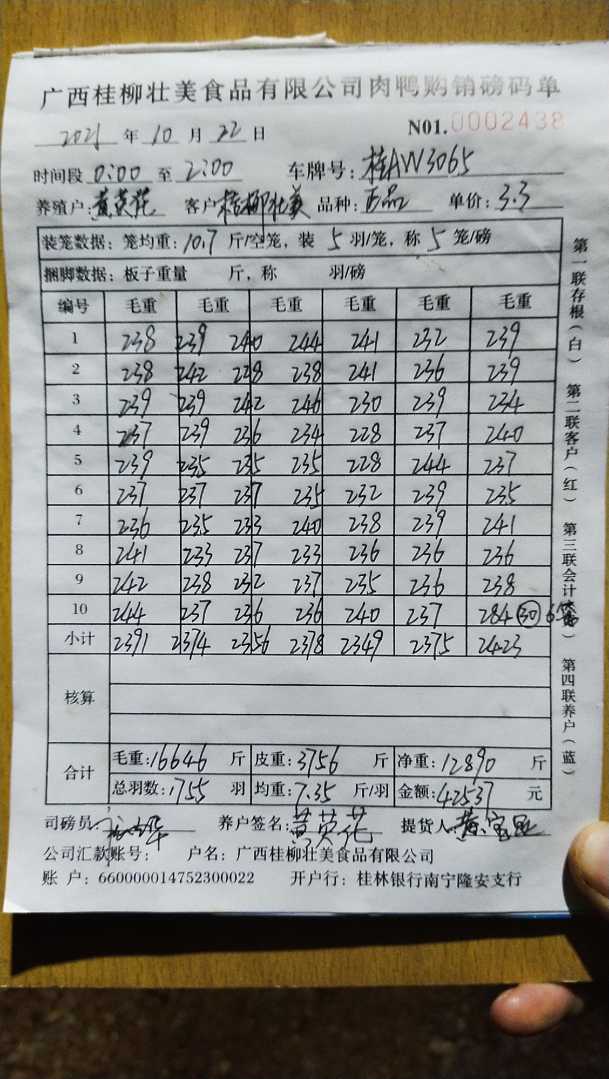 广西桂柳壮美食品有限公司肉鸭购销磅码单
2021 年 10 月 22 日 N01.0002438
时间段 0:00 至 2:00 车牌号: 桂AW3065
养殖户: 黄英花 客户 桂柳壮美 品种: 正品 单价: 3.3
装笼数据: 笼均重: 10.7 斤/空笼, 装 5 羽/笼, 称 5 笼/磅
捆脚数据: 板子重量 斤, 称 羽/磅
编号 毛重 毛重 毛重 毛重 毛重 毛重
1 238 239 240 244 241 232 239
2 238 242 228 238 241 236 239
3 239 239 242 246 230 239 234
4 237 239 236 234 228 237 240
5 239 235 235 235 228 244 237
6 237 237 237 235 232 239 235
7 236 235 233 240 238 239 241
8 241 233 237 233 236 236 236
9 242 238 232 237 235 236 238
10 244 237 236 236 240 237 284 30 6笼
小计 2391 2374 2356 2378 2349 2375 2423
核算
合计 毛重: 16646 斤 皮重: 3756 斤 净重: 12890 斤
总羽数: 1755 羽 均重: 7.35 斤/羽 金额: 42537 元
司磅员: 养户签名: 黄英花 提货人 黄
公司汇款账号: 户名: 广西桂柳壮美食品有限公司
账 户: 660000014752300022 开户行: 桂林银行南宁隆安支行
第一联存根(白) 第二联客户(红) 第三联会计( ) 第四联养户(蓝)